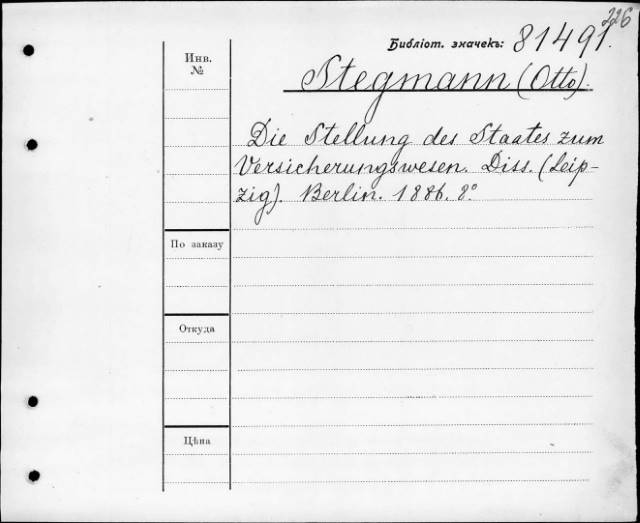 226
Библіот. значекъ: 81491.
Инв.
№
Stegmann (Otto).
Die Stellung des Staates zum
Versicherungswesen. Diss. (Leip-
zig). Berlin. 1886. 8°
По заказу
Откуда
Цѣна